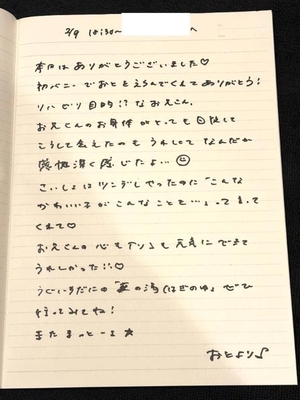 2/9 18:30〜 へ
本日はありがとうございました♡
初バニーでおとをえらんでくれてありがとう!
リハビリ目的!?なお兄さん。
お兄くんのお身体がとっても目覚して
こうして会えたのもうれしくてなんだか
感慨深く感じたよ…☺
さいしょはツンデレやったのに「こんな
かわいい子がこんなことを…」って言って
くれて♡
お兄くんの心も下りも元気にできて
うれしかった!!♡
うぐいすだにの「萩の湯(はぎのゆ)ぜひ
行ってみてね!
またまっとーよ★
おとより♪